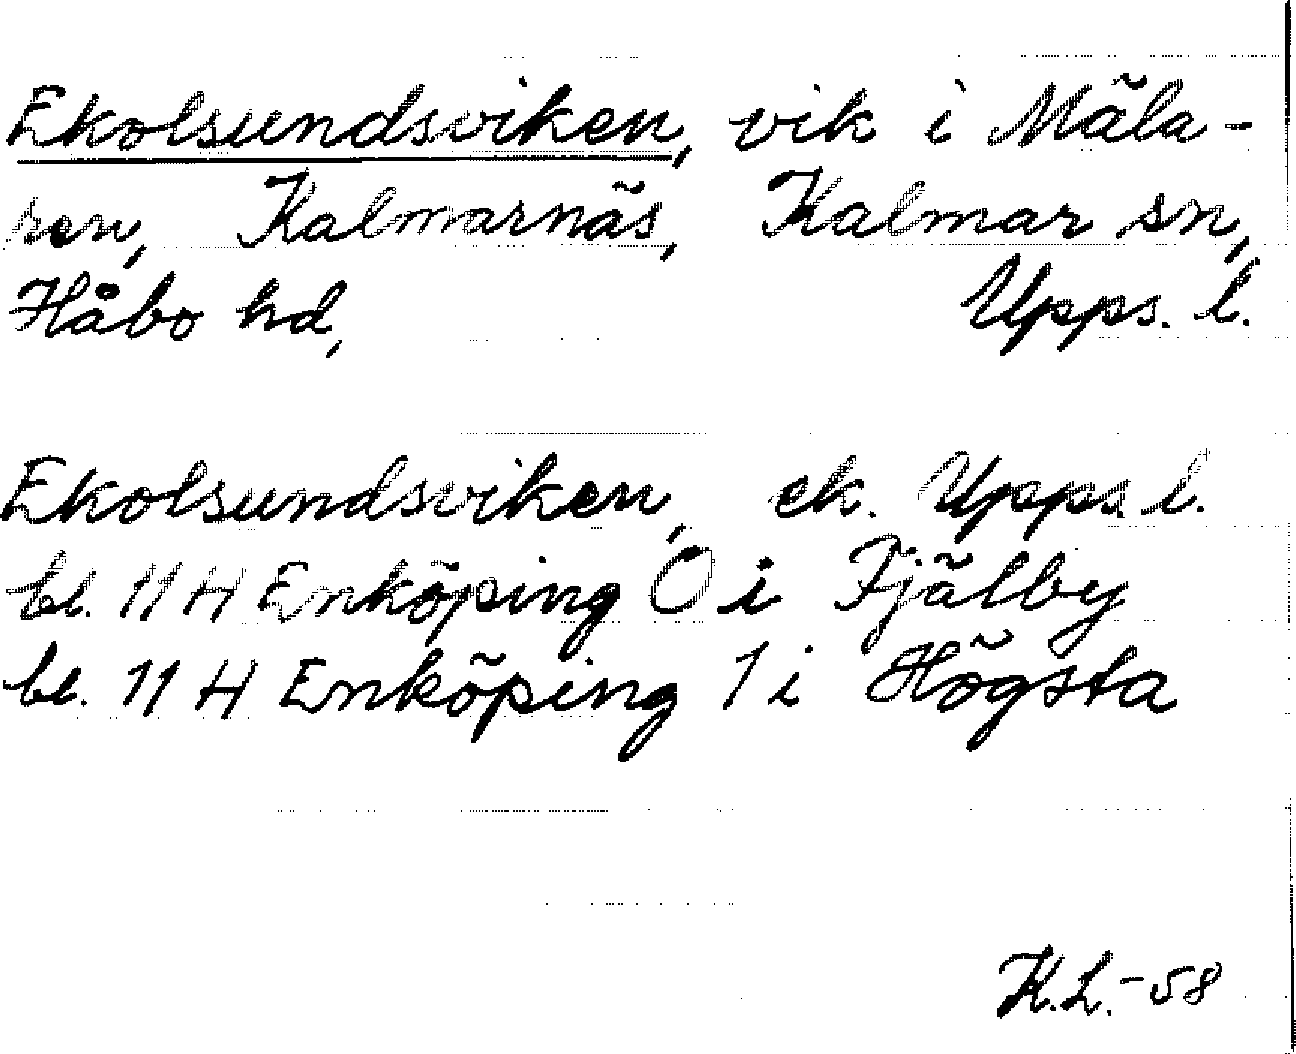 Ekolsundsviken, vik i Mäla-
ren, Kalmarnäs, Kalmar sn,
Håbo hd, Upps. l.
Ekolsundsviken, ek. Upps. l.
bl. 11 H Enköping 0 i Fjälby
bl. 11 H Enköping 1 i Högsta
K.L.-58